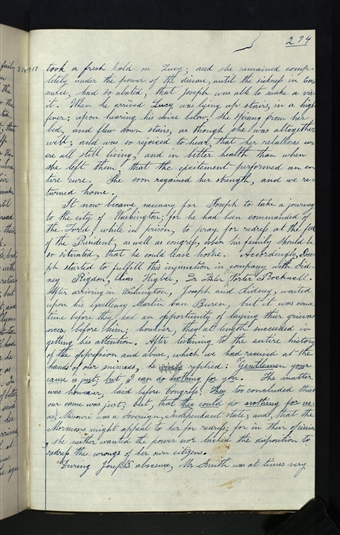 274
took a fresh hold on Lucy; and she remained comp-
letely under the power of the disease, until the sickness in Com
merce, had so abated, that Joseph was able to make a vis-
it. When he arrived Lucy was lying up stairs, in a high
fever; upon hearing his voice below, she sprang from her
bed, and flew down stairs, as though she was altogether
well; and was so rejoiced to hear, that her relations w-
ere all still living, and in better health than when
she left them, that the excitement performed an en
tire cure. She soon regained her strength, and we re-
turned home.
It now became, necessary for Joseph to take a journey
to the city of Washington; for he had been commanded of
the Lord, while in prison, to pray for redress at the feet
of the President, as well as congress, when his family should be
so situated, that he could leave home. Accordingly, Jose
ph started to fulfill this injunction in company with Sid
ney Rigdon, Elias Higbee, Dr. Porter Rockwell.
After arriving in Washington, Joseph and Sidney, waited
upon his Excellency Martin Van Buren, but it was some
time before they had an opportunity of laying their grievan
ces before him; however, they at length succeeded in
getting his attention. After listening to the entire history
of the oppression and abuse, which we had received at the
hands of our enemies, he replied: "Gentlemen your
cause is just; but I can do nothing for you. The matter
was however, laid before Congress: they too concluded, that
our cause was just; but, that they could do nothing for us
as, Missouri was a sovereign, independent state; and, that the
Mormons might appeal to her for redress; for in their opinion
she neither wanted the power nor lacked the disposition to
redress the wrongs of her own citizens.
During Joseph's absence, Mr Smith was at times very